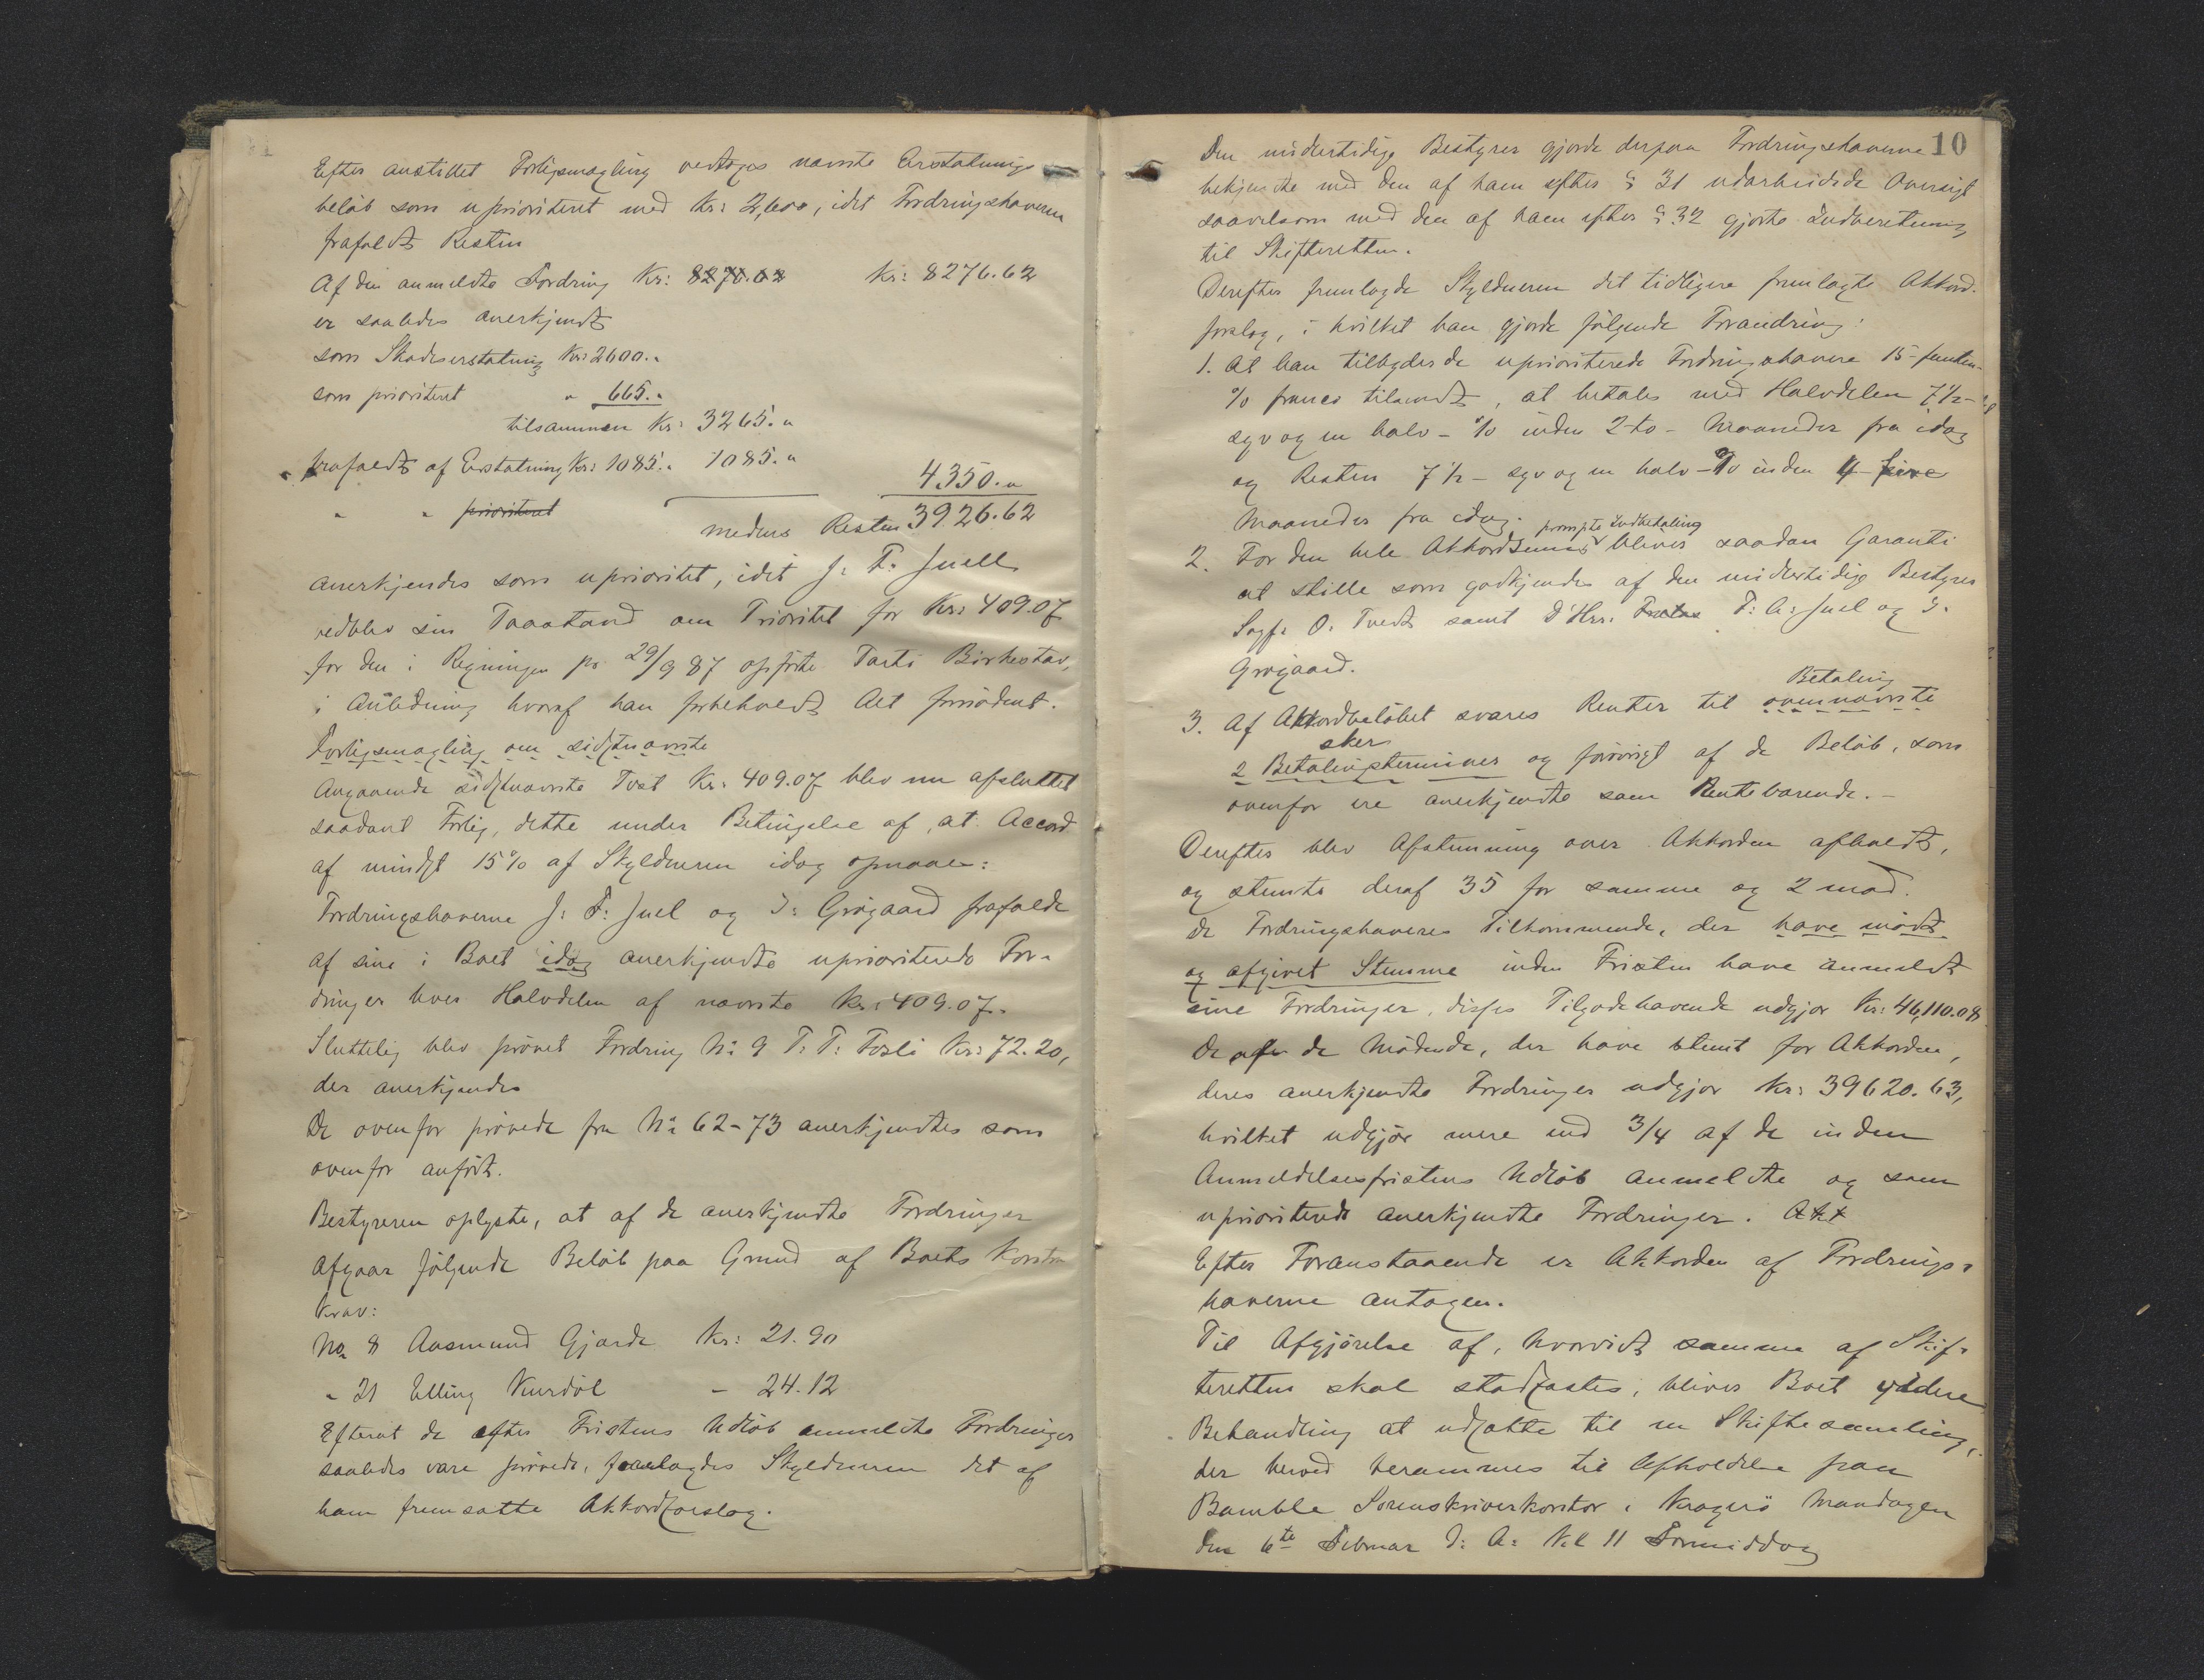 Efter anstillet Forligsmægling vedtoges nævnte Erstatnings
beløb som uprioriteret med Kr: 2,600, idet Fordringshaveren
frafaldt Resten
Af den anmeldte Fordring Kr: 8276.62 Kr: 8276.62
er saaledes anerkjendt
som Skadeserstatning Kr: 2600.„
som prioriteret „ 665.„
tilsammen Kr: 3265.„
frafaldt af Erstatning Kr: 1085.„ 1085.„
4350.„
„ „ prioriteret
medens Resten 3926.62
anerkjendes som uprioritet, idet J: F: Juell
vedblev sin Paastand om Prioritet for Kr: 409.07
for den i Regningen pr 29/9 87 opførte Parti Birkestav,
i Anledning hvoraf han forbeholdt Alt fornødent.
Forligsmægling om sidstnævnte
Angaaende sidstnævnte Post Kr: 409.07 blev nu afsluttet
saadant Forlig, dette under Betingelse af, at Accord
af mindst 15% af Skyldneren idag opnaaes:
Fordringshaverne J: F: Juel og I: Grøgaard frafalde
af sine i Boet idag anerkjendte uprioriterede For-
dringer hver Halvdelen af nævnte Kr: 409.07.
Sluttelig blev prøvet Fordring No 9 T: T: Fosli Kr: 72.20,
der anerkjendes
De ovenfor prøvede fra No 62-73 anerkjendtes som
ovenfor anført.
Bestyreren oplyste, at af de anerkjendte Fordringer
afgaar følgende Beløb paa Grund af Boets Kontra
Krav:
No 8 Aasmund Gjarde Kr: 21.90
„ 21 Elling Kurdøl - 24.12
Efterat de efter Fristens Udløb anmeldte Fordringer
saaledes vare prøvede, forelagdes Skyldneren det af
ham fremsatte Akkordforslag.
10
Den midlertidige Bestyrer gjorde derpaa Fordringshaverne
bekjendte med den af ham efter § 31 udarbeidede Oversigt
saavelsom med den af ham efter § 32 gjorte Indberetning
til Skifteretten.
Derefter fremlagde Skyldneren det tidligere fremlagte Akkord-
forslag, i hvilket han gjorde følgende Forandring:
1. At han tilbyder de uprioriterede Fordringshavere 15-femten-
% franco tilsendt, at betales med Halvdelen 7½-
syv og en halv-% inden 2-to-Maaneder fra idag
og Resten 7½-syv og en halv-% inden 4-fire
Maaneder fra idag.
prompte Indbetaling
2. For den hele Akkordsums bliver saadan Garanti
at stille som godkjendes af den midlertidige Bestyrer
Sagf: O. Tvedt samt D'Hrr: F: A: Juel og I.
Grøgaard.
Betaling
3. Af Akkordbeløbet svares Renter til ovennævnte
sker
2 Betalingsterminer og forøvrigt af de Beløb, som
ovenfor ere anerkjendte som Rentebærende.-
Derefter blev Afstemning over Akkorden afholdt,
og stemte deraf 35 for samme og 2 mod.
De Fordringshaveres Tilkommende, der have mødt
og afgivet Stemme inden Fristen have anmeldt
sine Fordringer, disses Tilgodehavende udgjør Kr: 46,110.08
De af de Mødende, der have stemt for Akkorden,
deres anerkjendte Fordringer udgjør Kr: 39620.63,
hvilket udgjør mere end 3/4 af de inden
Anmeldelsesfristens Udløb anmeldte og som
uprioriterede anerkjendte Fordringer. Akk
Efter Foranstaaende er Akkorden af Fordrings-
haverne antagen.
Til Afgjørelse af, hvorvidt samme af Skif-
teretten skal stadfæstes, bliver Boet ydere
Behandling at udsætte til en Skiftesamling,
der herved berammes til Afholdelse paa
Bamble Sorenskriverkontor i Kragerø Mandagen
den 6te Februar d: A: Kl 11 Formiddag